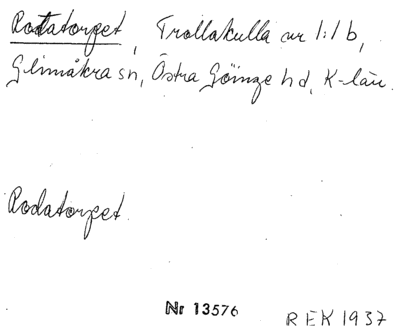 Rotatorpet, Trollakulla nr 1:1 b,
Glimåkra sn, Östra Göinge hd, K-län.
Rodatorpet.
Nr 13576
REK 1937